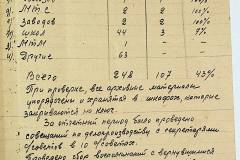 М.Т.С 2 2 100%
Заводов 2 2 100%
школ 44 3 7%
МТМ 1 - -
Другие 63 -
Всего 248 107 43%
При проверке все архивные материалы
упорядочены и хранятся в шкафах, которые
закрываются на ключ.
За отчетный период было проведено
совещаний по делопроизводству с секретарями
с/советов в 10 с/советах.
сбор воспоминаний с вернувшимися